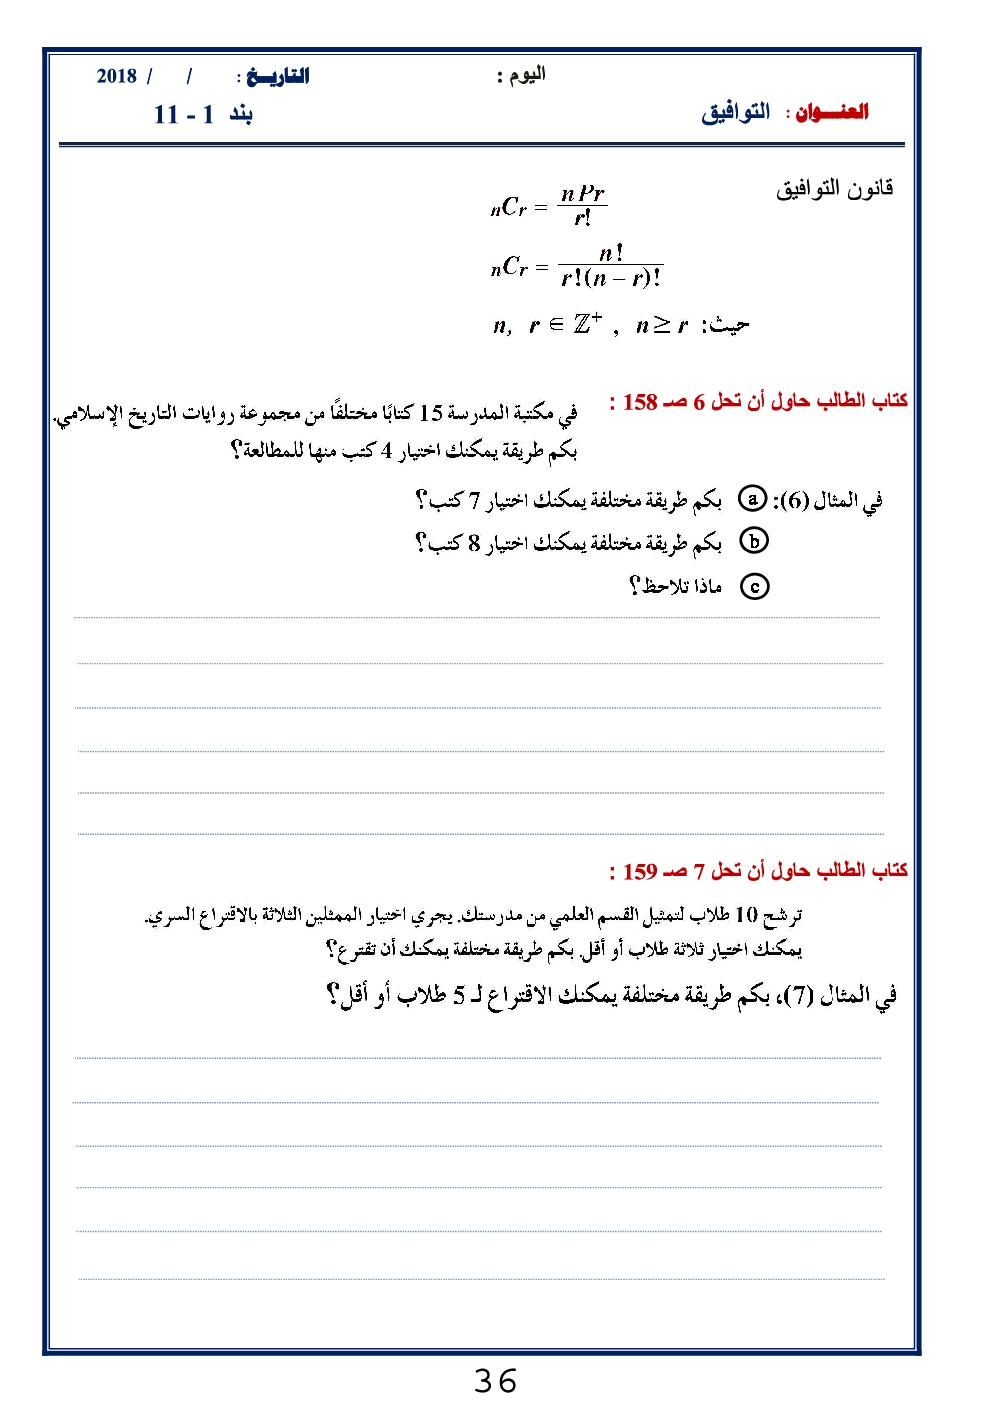 اليوم :                    التاريـــخ :    /    /  2018
العنـــوان :  التوافيق                    بند  1 - 11
قانون التوافيق
nCr = nPr / r!
nCr = n! / r!(n − r)!
حيث: n, r ∈ ℤ⁺ , n ≥ r
كتاب الطالب حاول أن تحل 6 صـ 158 :
في مكتبة المدرسة 15 كتابًا مختلفًا من مجموعة روايات التاريخ الإسلامي.
بكم طريقة يمكنك اختيار 4 كتب منها للمطالعة؟
في المثال (6): a بكم طريقة مختلفة يمكنك اختيار 7 كتب؟
b بكم طريقة مختلفة يمكنك اختيار 8 كتب؟
c ماذا تلاحظ؟
كتاب الطالب حاول أن تحل 7 صـ 159 :
ترشح 10 طلاب لتمثيل القسم العلمي من مدرستك. يجري اختيار الممثلين الثلاثة بالاقتراع السري.
يمكنك اختيار ثلاثة طلاب أو أقل. بكم طريقة مختلفة يمكنك أن تقترع؟
في المثال (7)، بكم طريقة مختلفة يمكنك الاقتراع لـ 5 طلاب أو أقل؟
36